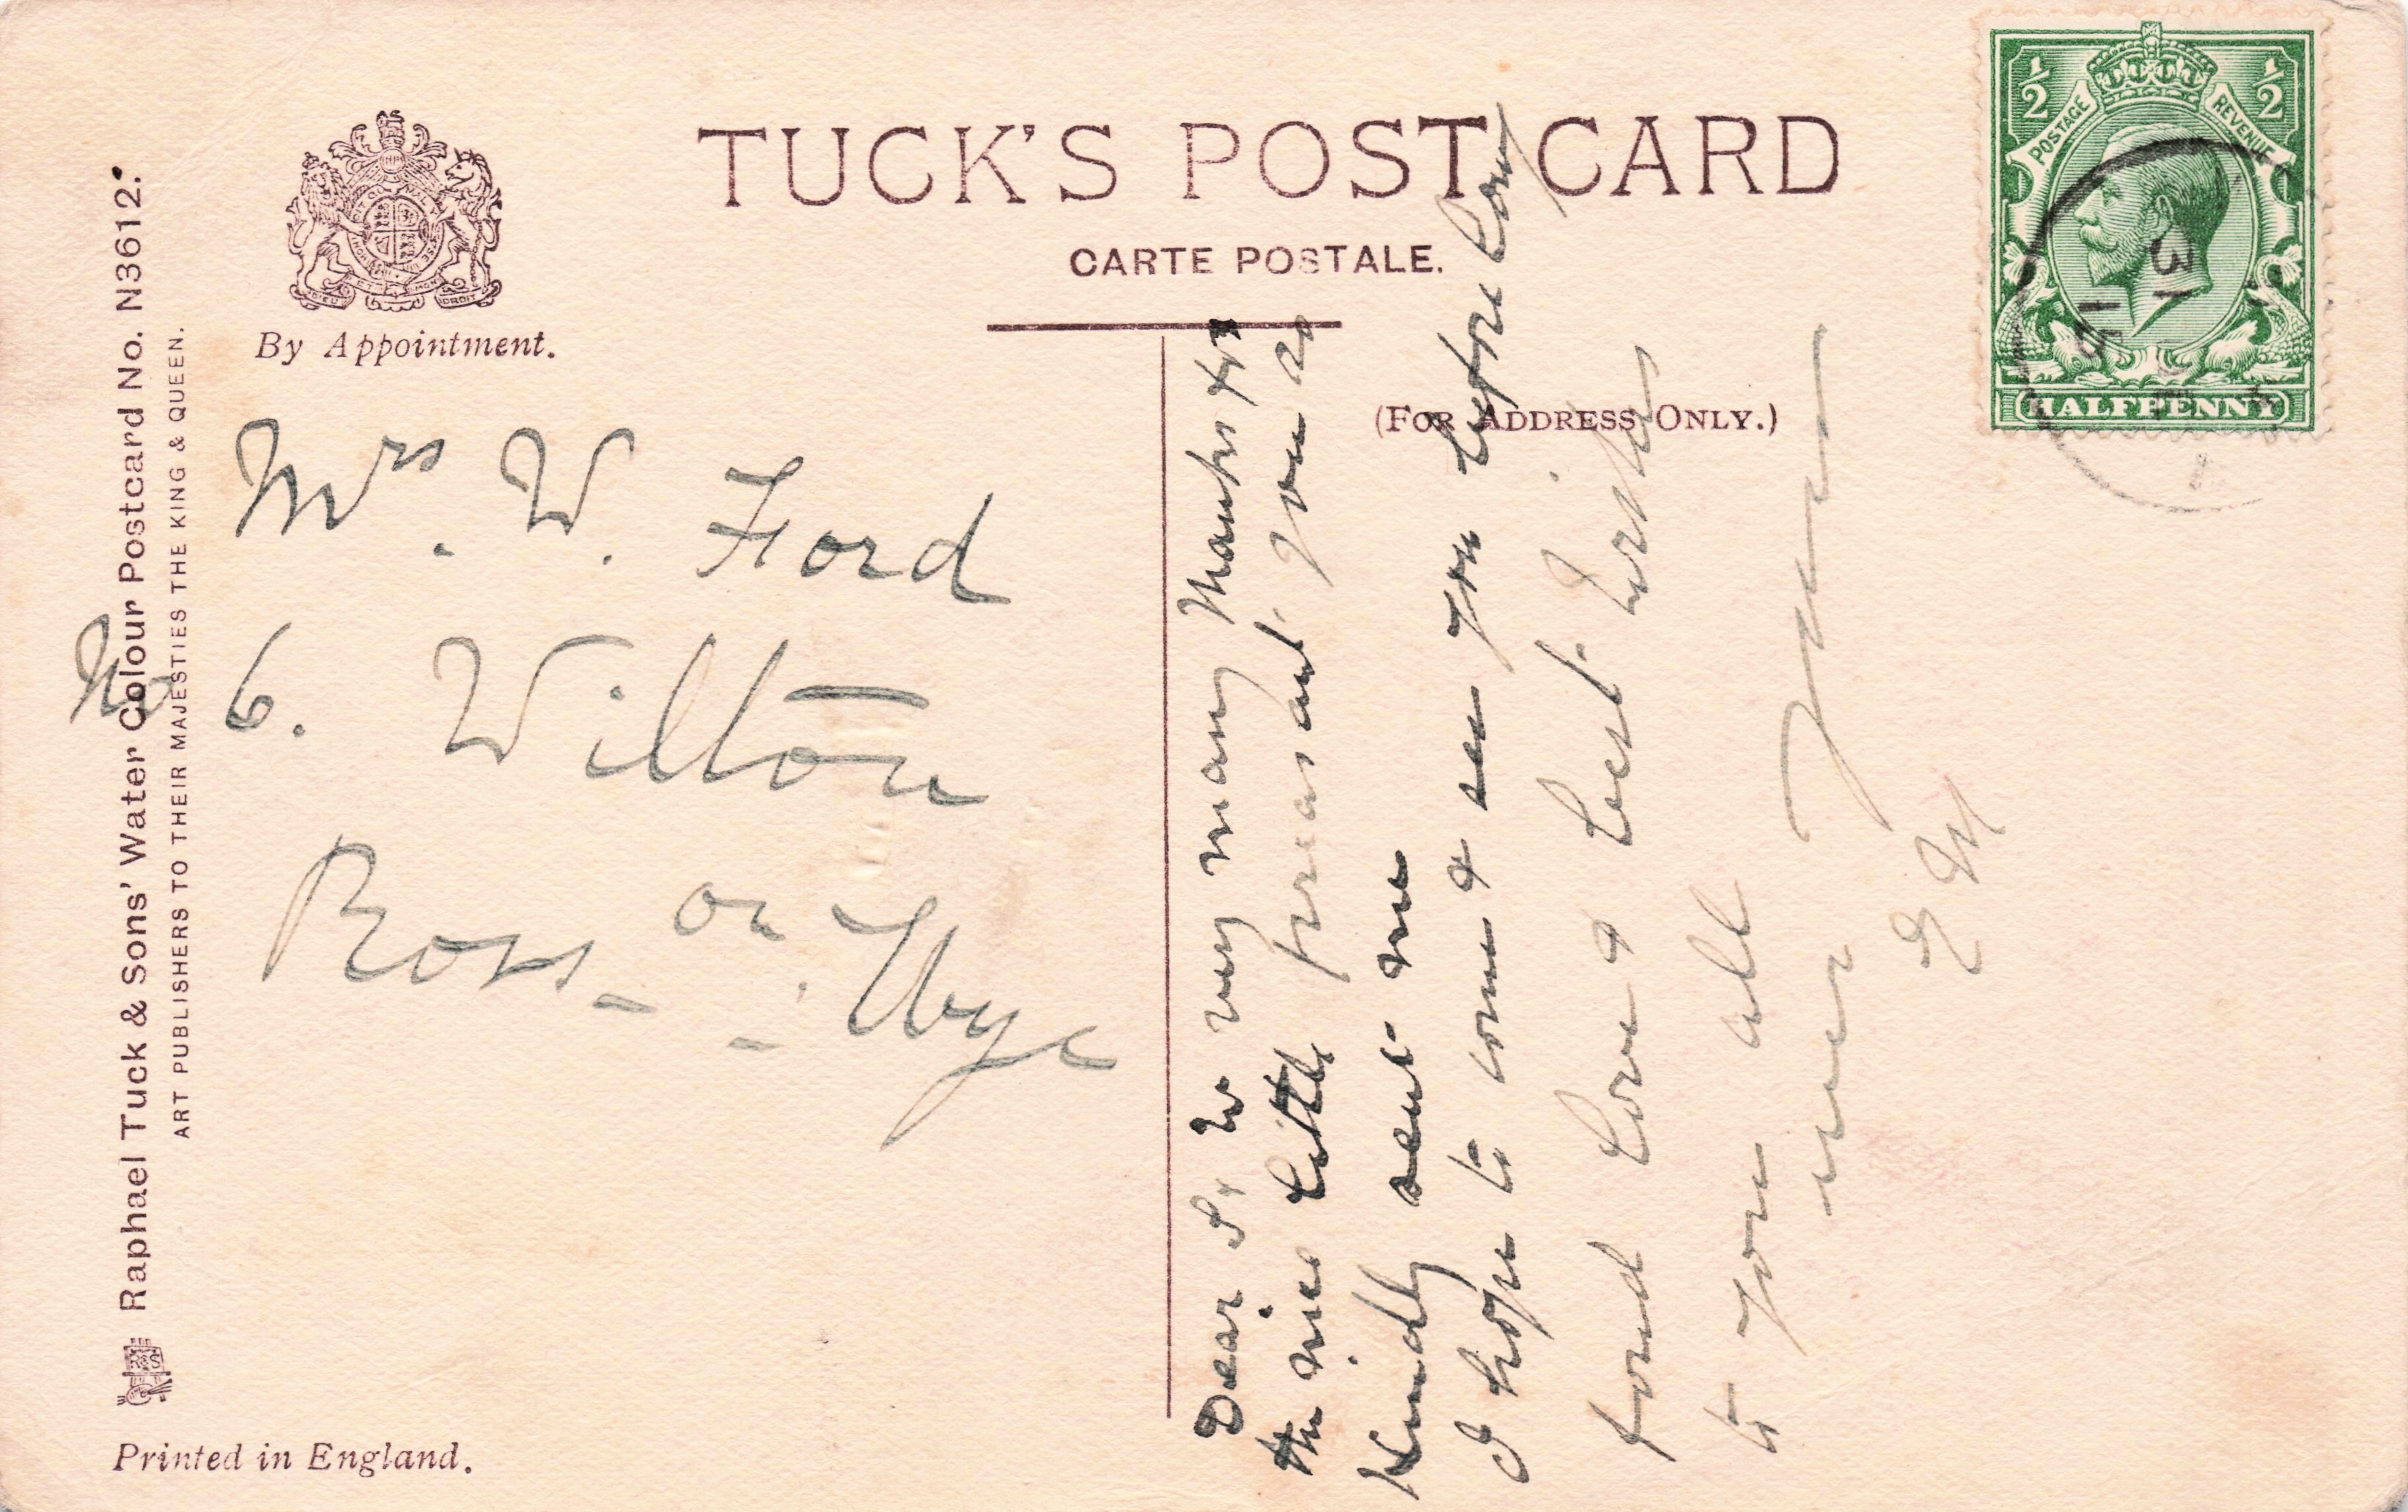 TUCK'S POST CARD
CARTE POSTALE.
By Appointment.
(FOR ADDRESS ONLY.)
Raphael Tuck & Sons' Water Colour Postcard No. N3612.
ART PUBLISHERS TO THEIR MAJESTIES THE KING & QUEEN.
Printed in England.
½ ½
POSTAGE REVENUE
HALFPENNY
31
15
DIEU ET MON DROIT
Mrs. W. Ford
No 6. Wilton
Ross-on-Wye
Dear S, & W very many thanks for
the nice little present you so
kindly sent me
I hope to come & see you before long
fond love & best wishes
to you all
ever yours
E M